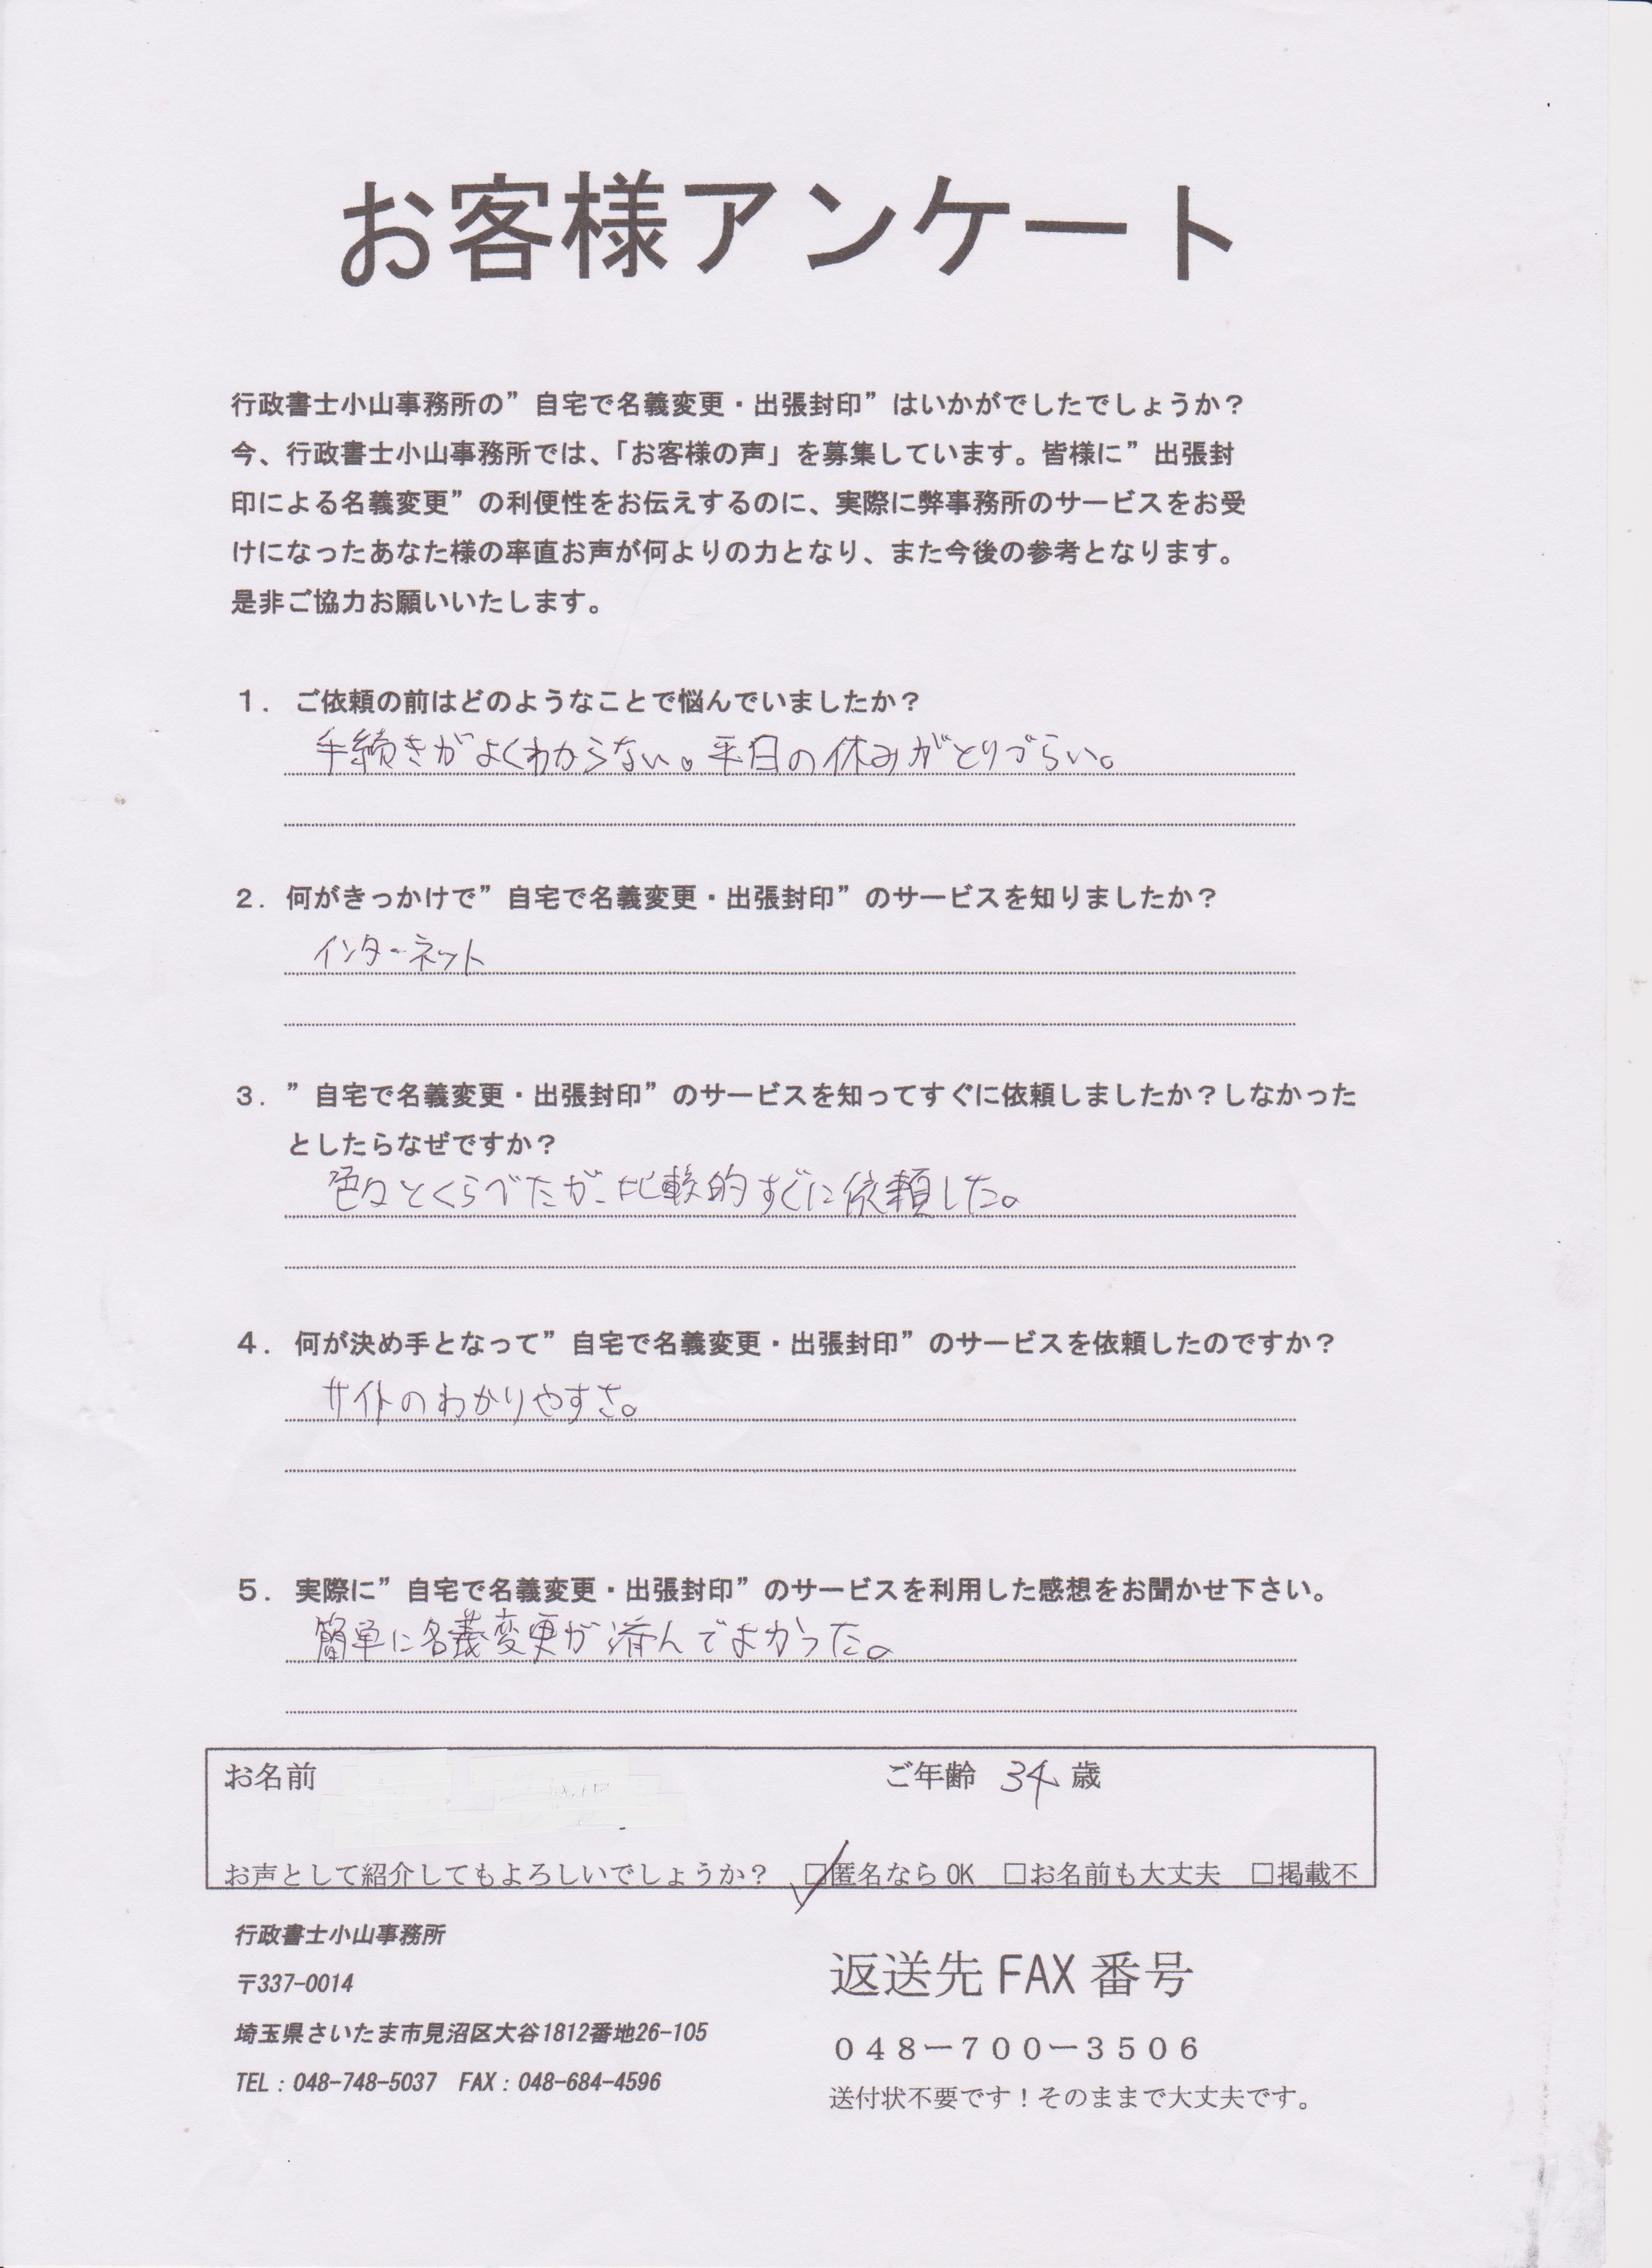 お客様アンケート
行政書士小山事務所の”自宅で名義変更・出張封印”はいかがでしたでしょうか？
今、行政書士小山事務所では、「お客様の声」を募集しています。皆様に”出張封
印による名義変更”の利便性をお伝えするのに、実際に弊事務所のサービスをお受
けになったあなた様の率直お声が何よりの力となり、また今後の参考となります。
是非ご協力お願いいたします。
１．ご依頼の前はどのようなことで悩んでいましたか？
手続きがよくわからない。平日の休みがとりづらい。
２．何がきっかけで”自宅で名義変更・出張封印”のサービスを知りましたか？
インターネット
３．”自宅で名義変更・出張封印”のサービスを知ってすぐに依頼しましたか？しなかった
としたらなぜですか？
色々とくらべたが、比較的すぐに依頼した。
４．何が決め手となって”自宅で名義変更・出張封印”のサービスを依頼したのですか？
サイトのわかりやすさ。
５．実際に”自宅で名義変更・出張封印”のサービスを利用した感想をお聞かせ下さい。
簡単に名義変更が済んでよかった。
お名前 ご年齢 34 歳
お声として紹介してもよろしいでしょうか？ ☑匿名なら OK □お名前も大丈夫 □掲載不
行政書士小山事務所
〒337-0014
埼玉県さいたま市見沼区大谷1812番地26-105
TEL：048-748-5037 FAX：048-684-4596
返送先 FAX 番号
０４８－７００－３５０６
送付状不要です！そのままで大丈夫です。